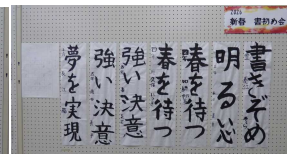 2026
新春 書初め会
書きぞめ
明る心
春を待つ
春を待つ
強い決意
強い決意
夢を実現